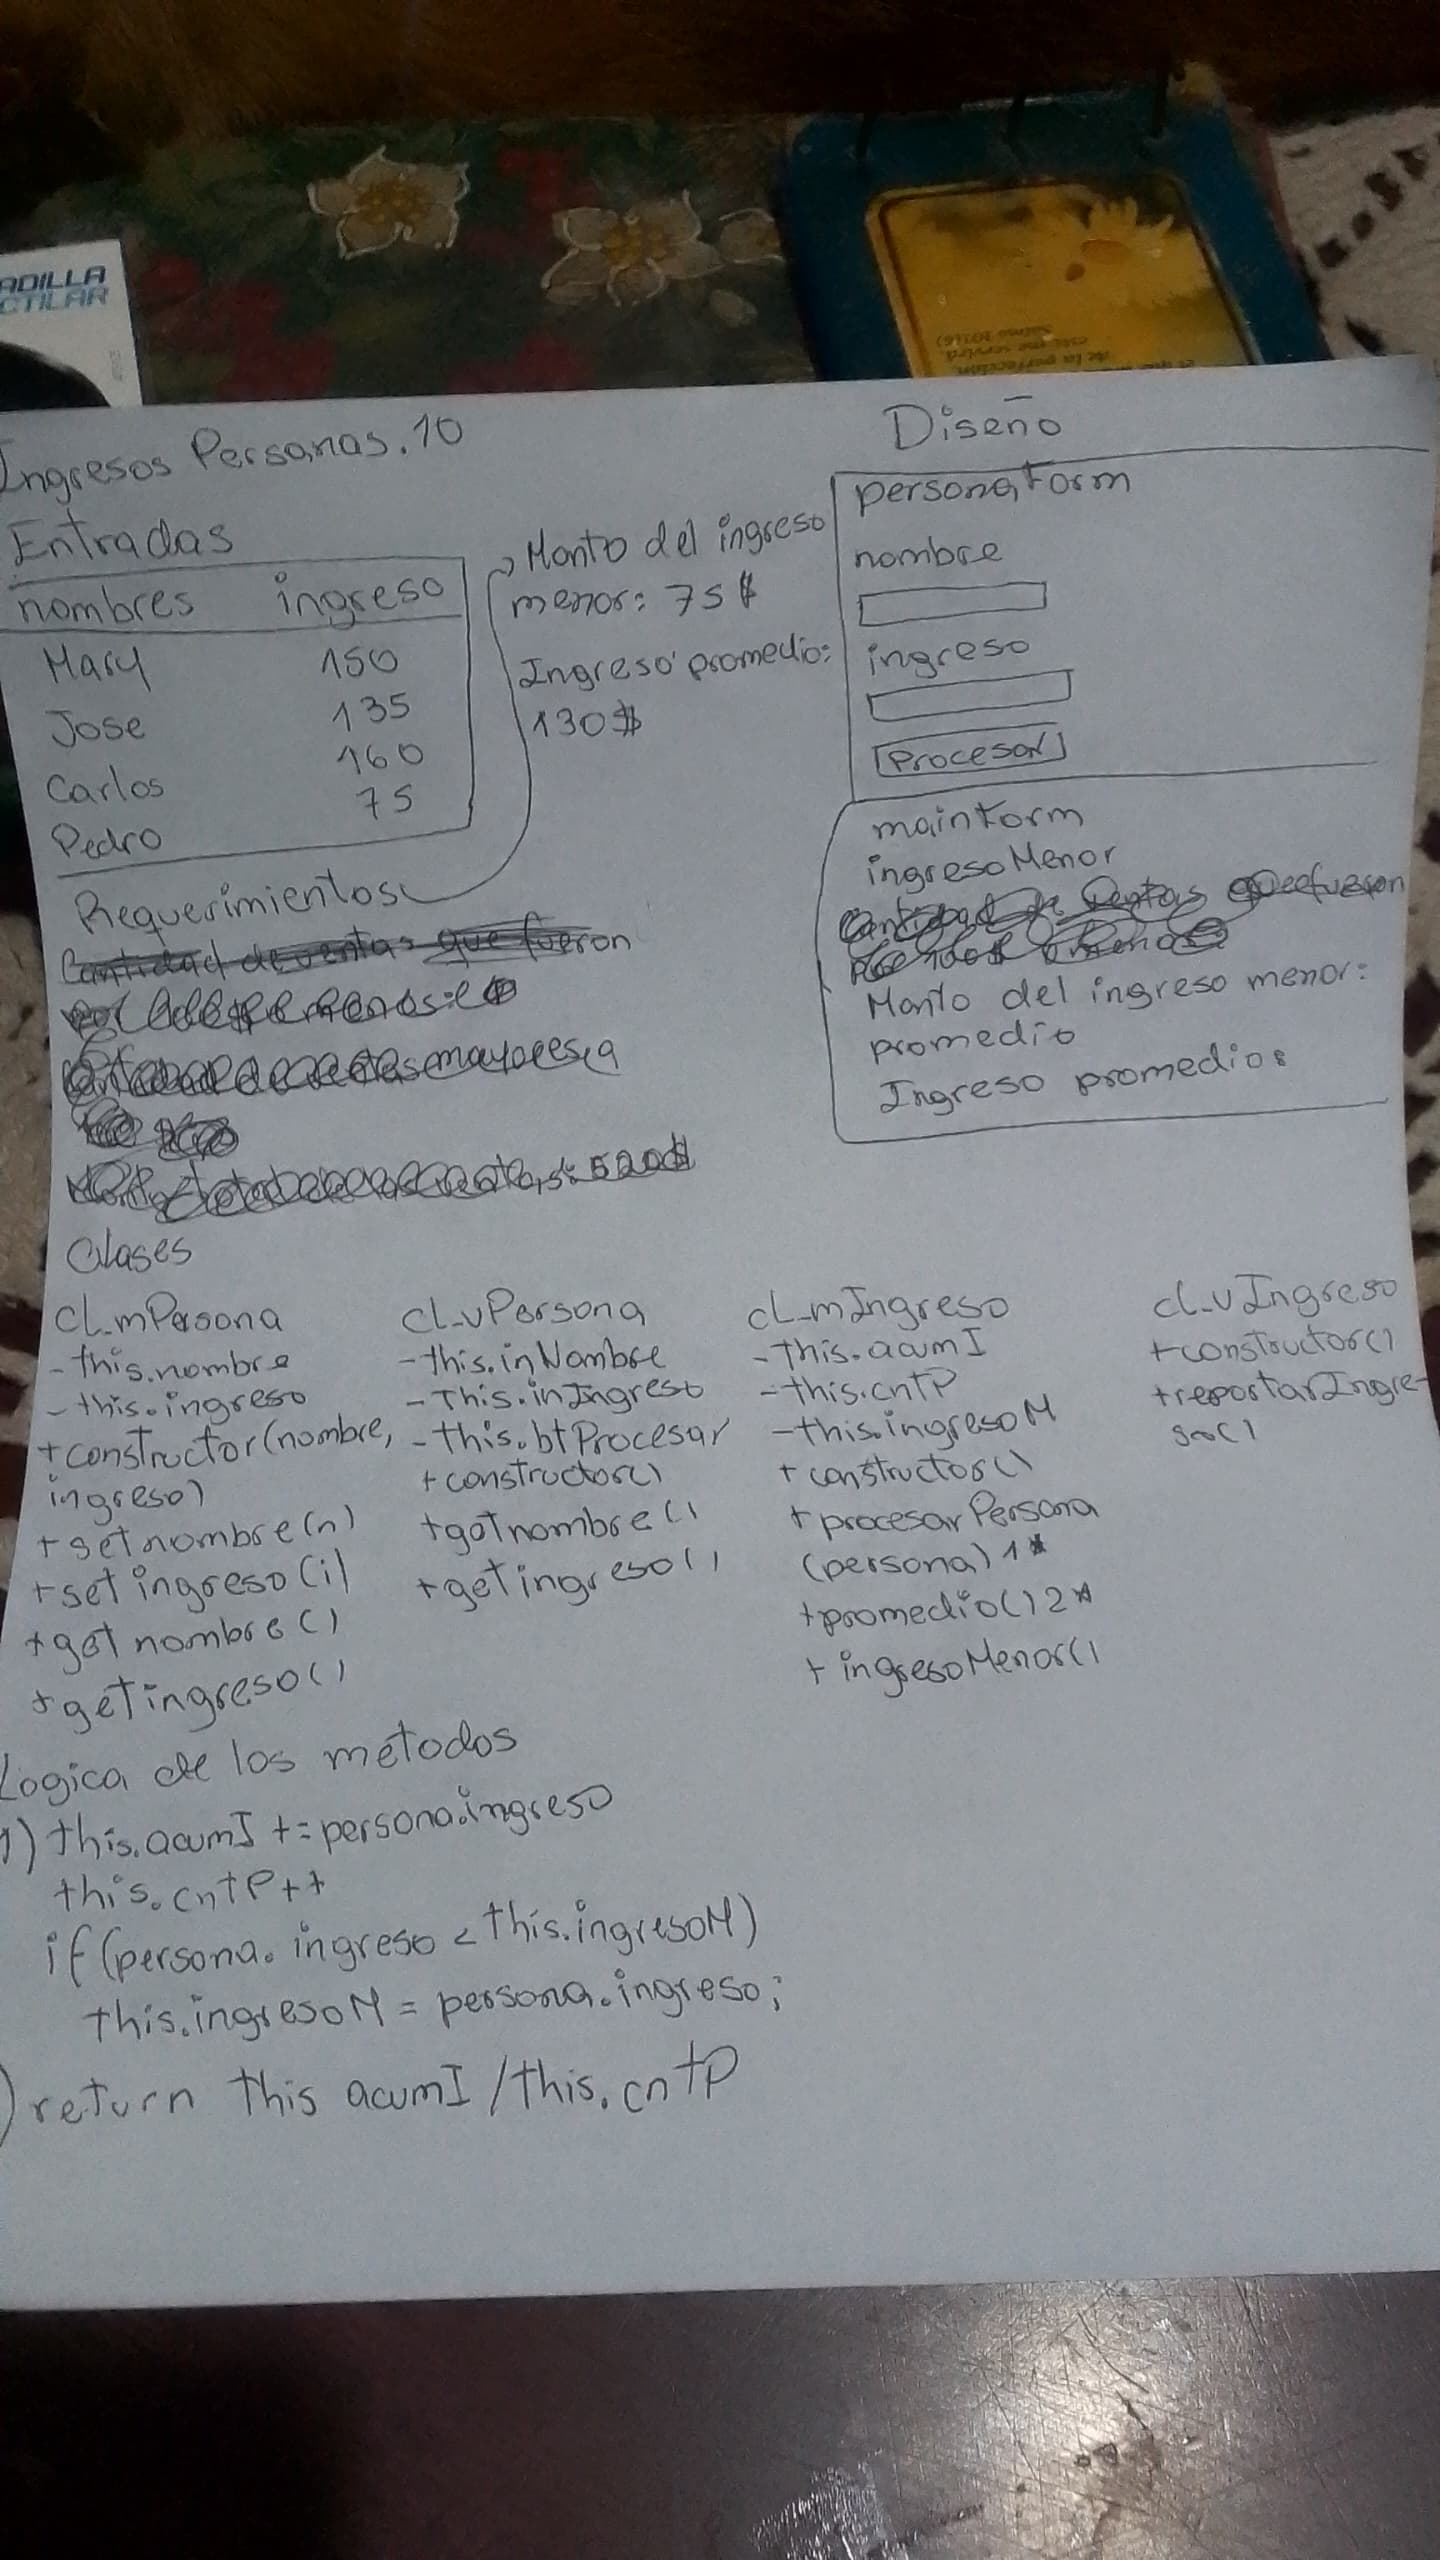 ADILLA
CTILAR
Ingresos Personas.10
Entradas
nombres ingreso
Mary 150
Jose 135
Carlos 160
Pedro 75
Monto del ingreso
menor: 75$
Ingreso promedio:
130$
Requerimientos
Cantidad de ventas que fueron
Diseño
personaForm
nombre
ingreso
Procesar
mainForm
ingresoMenor
Monto del ingreso menor:
promedio
Ingreso promedio:
Clases
CL_mPersona
-this.nombre
-this.ingreso
+constructor(nombre,
ingreso)
+set nombre(n)
+set ingreso(i)
+get nombre()
+get ingreso()
CL_vPersona
-this.inNombre
-This.inIngreso
-this.btProcesar
+constructor()
+get nombre()
+get ingreso()
cl_mIngreso
-this.acumI
-this.cntP
-this.ingresoM
+constructor()
+procesarPersona
(persona) 1*
+promedio() 2*
+ingresoMenor()
cl_vIngreso
+constructor()
+reportarIngre-
so()
Logica de los metodos
1) this.acumI += persona.ingreso
this.cntP++
if (persona.ingreso < this.ingresoM)
this.ingresoM = persona.ingreso;
) return this acumI / this.cntP